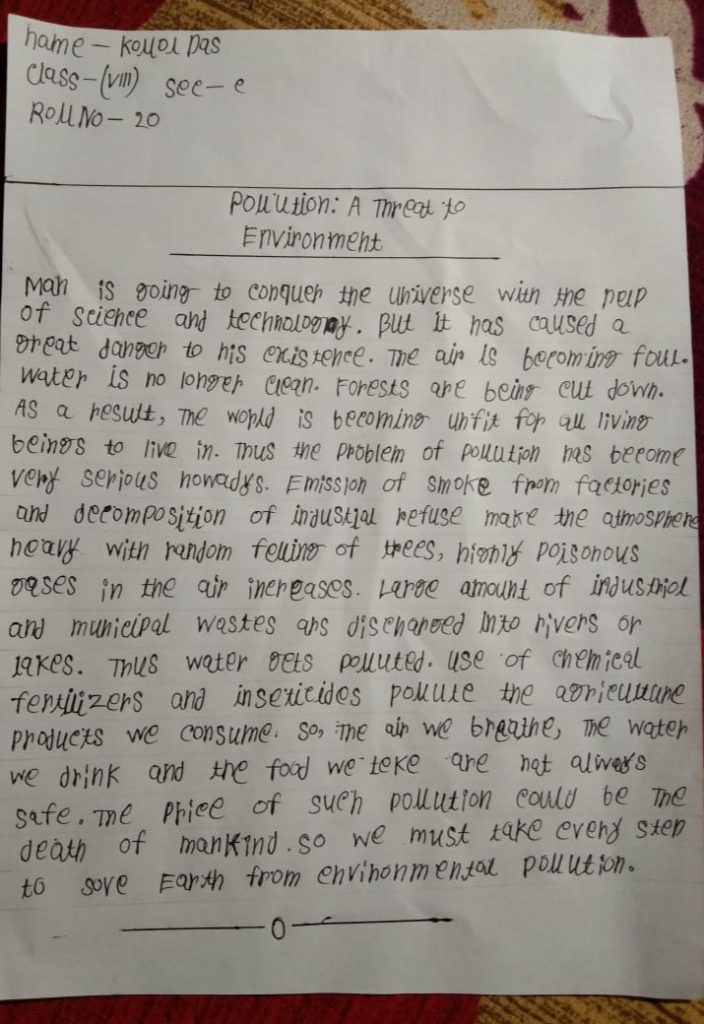 name - Kollol Das
Class-(VIII) sec-e
Roll No - 20
Pollution: A Threat to
Environment
Man is going to conquer the universe with the help
of science and technology. But it has caused a
great danger to his existence. The air is becoming foul.
Water is no longer clean. Forests are being cut down.
As a result, the world is becoming unfit for all living
beings to live in. Thus the problem of pollution has become
very serious nowadys. Emission of smoke from factories
and decomposition of industial refuse make the atmosphere
heavy with random felling of trees, highly poisonous
gases in the air increases. Large amount of industrial
and municipal wastes ans discharged into rivers or
lakes. Thus water gets polluted. use of chemical
fertilizers and insecticides pollute the agriculture
products we consume. So, the air we breathe, the water
we drink and the food we teke are not always
safe. The price of such pollution could be the
death of mankind. so we must take every step
to save Earth from environmental pollution.